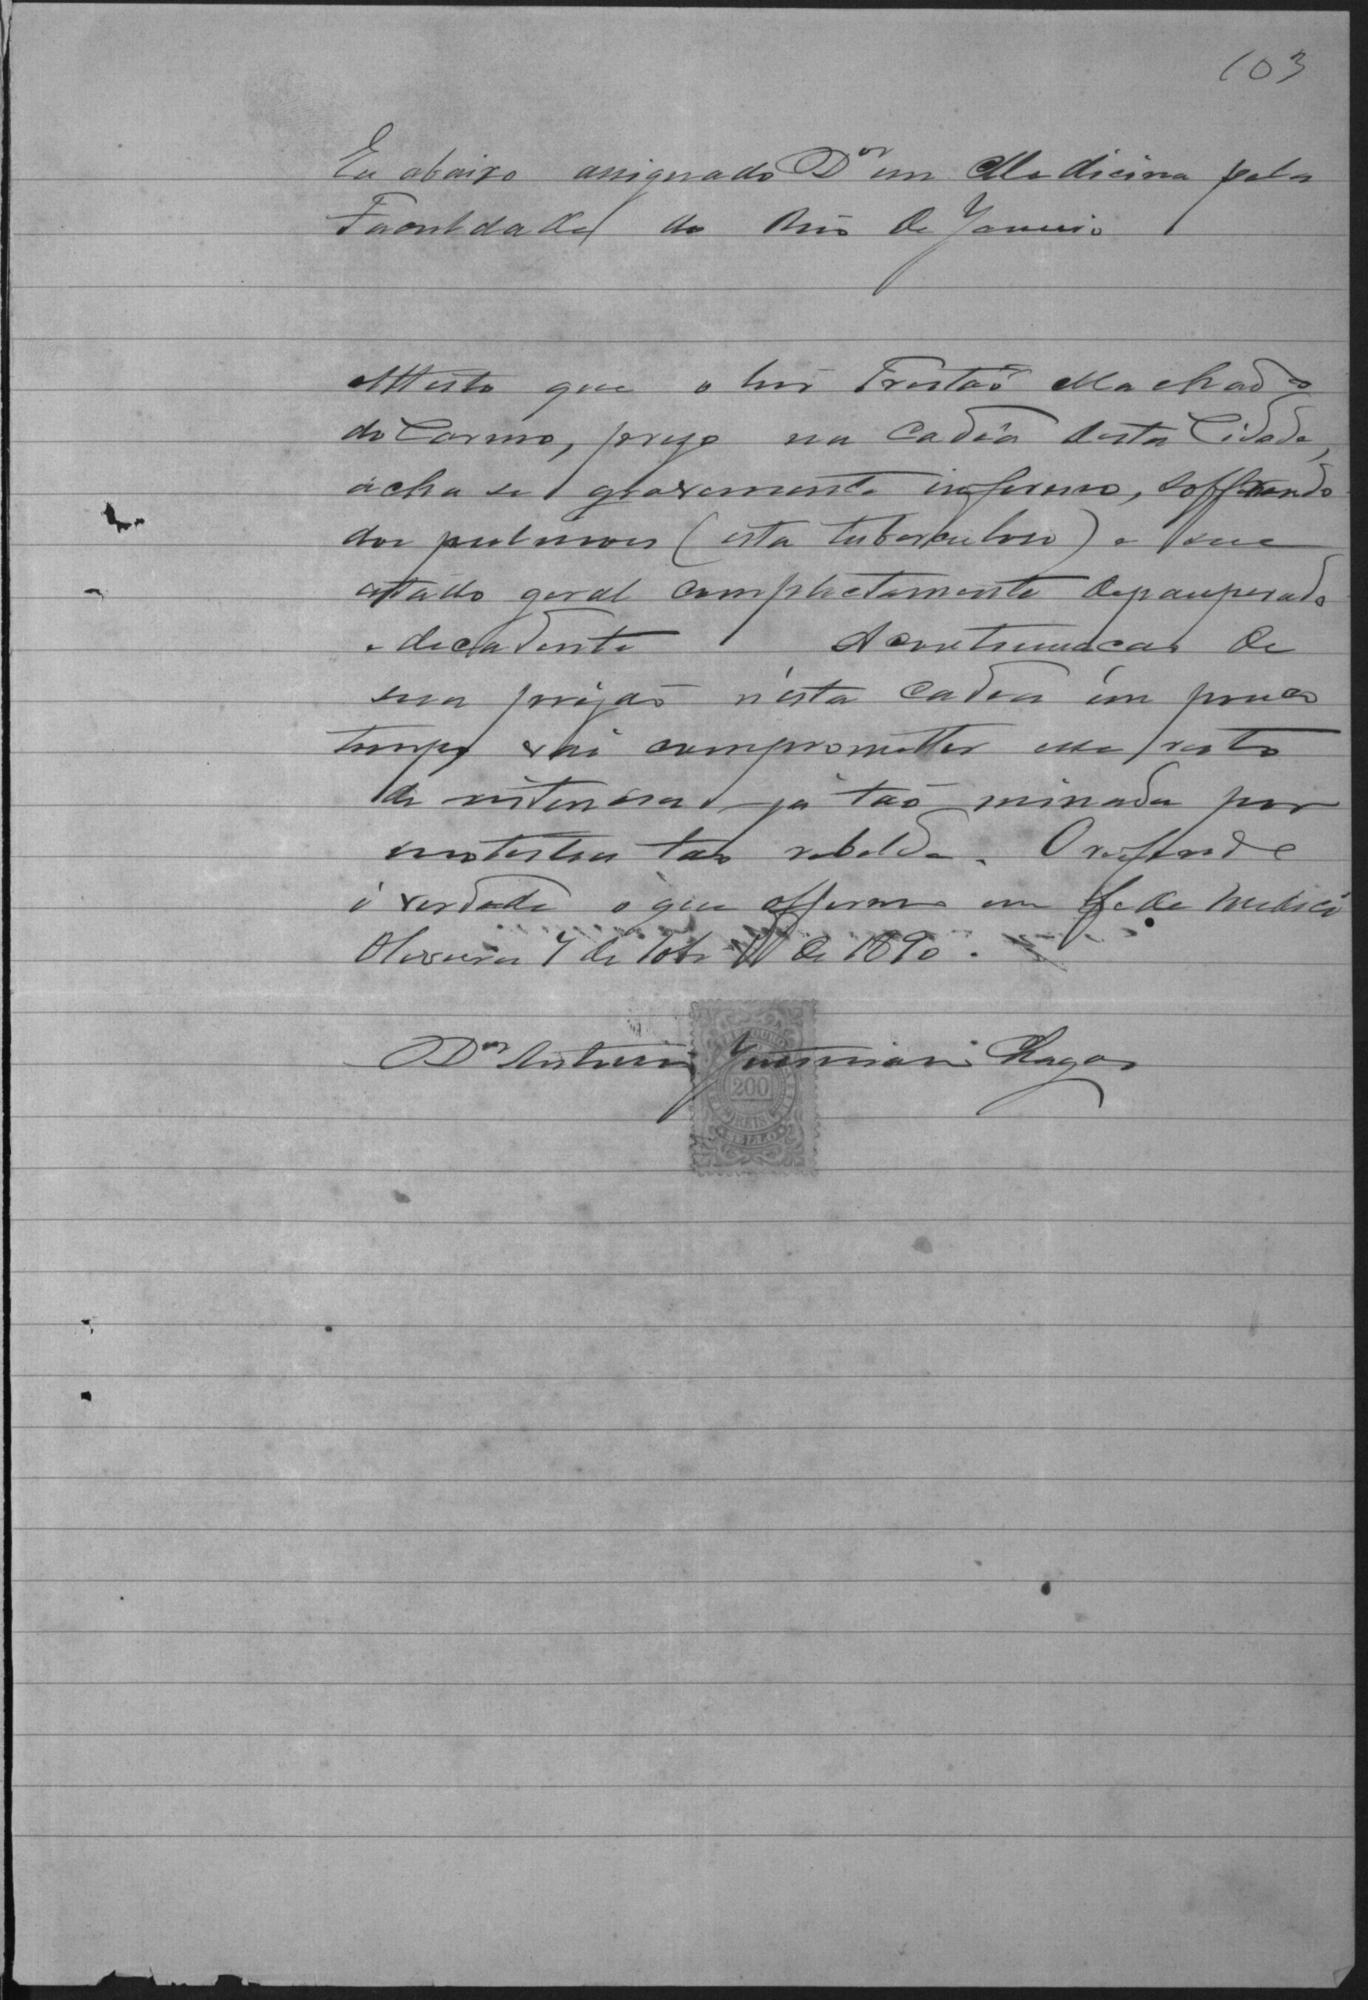 103
Eu abaixo assignado Dor em Medicina pela
Faculdade do Rio de Janeiro
Attesto que o Tristaõ Machado
do Carmo, prezo na Cadêa desta Cidade,
acha se gravemente enfermo, soffrendo
dos pulmões (esta tuberculoso) e seu
estado geral completamente depauperado
e decadente A continuacaõ de
sua prizaõ n'esta cadea em pouco
tempo vai comprometter esse resto
de ja taõ minada por
molestia tao rebelde. O referido
é verdade o que affirmo em fé de medico
Oliveira 7 de de 1890.
Dor Antonio Justiniani Chagas
200
REIS